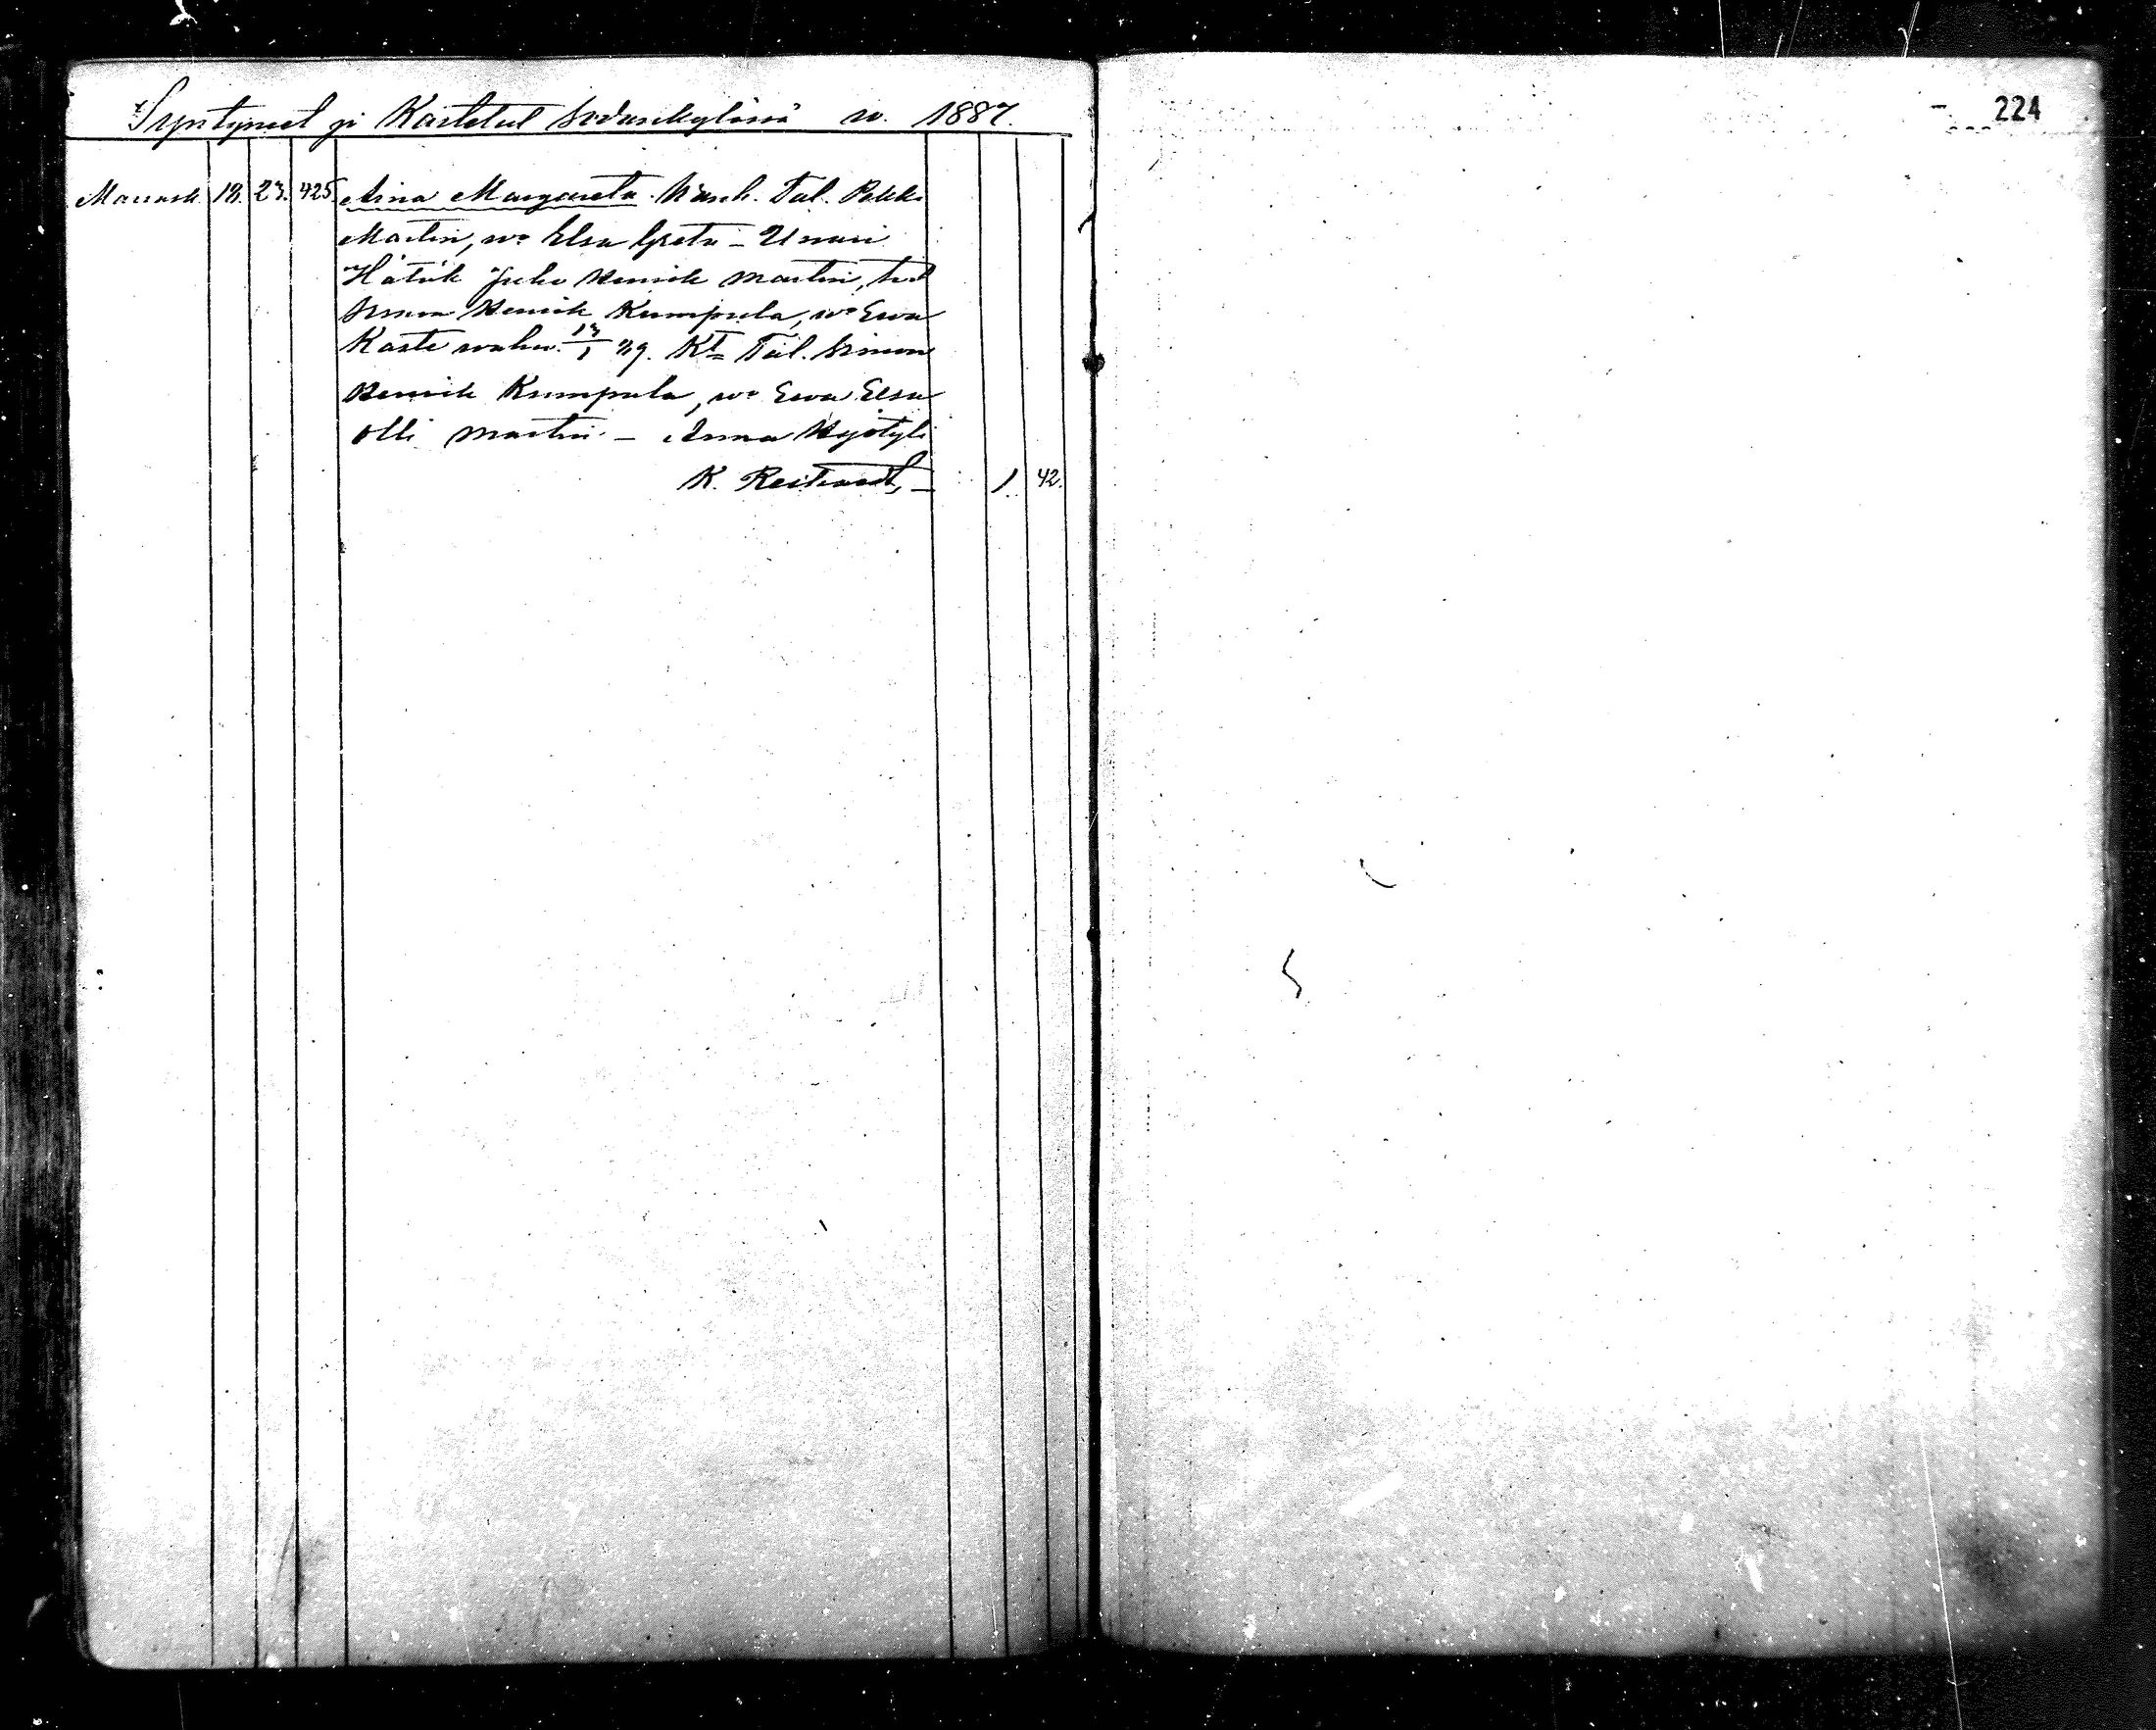 Syntyneet ja Kastetut Sodankylässä w. 1887.
224
Marrask. 18. 23. 425 Aina Margareta. Wanh. Tal. Pekka
Martin, wo Elsa Greta – Unari
Hätäk Juho Henrik Martin, tal
Simon Henrik Kumpula, wo Ewa
Kaste wahw. 13/1 Kt Tal. Simon
Henrik Kumpula, wo Ewa Elsa
Olli Martin – Anna Hyötyli
K. 1. 42.